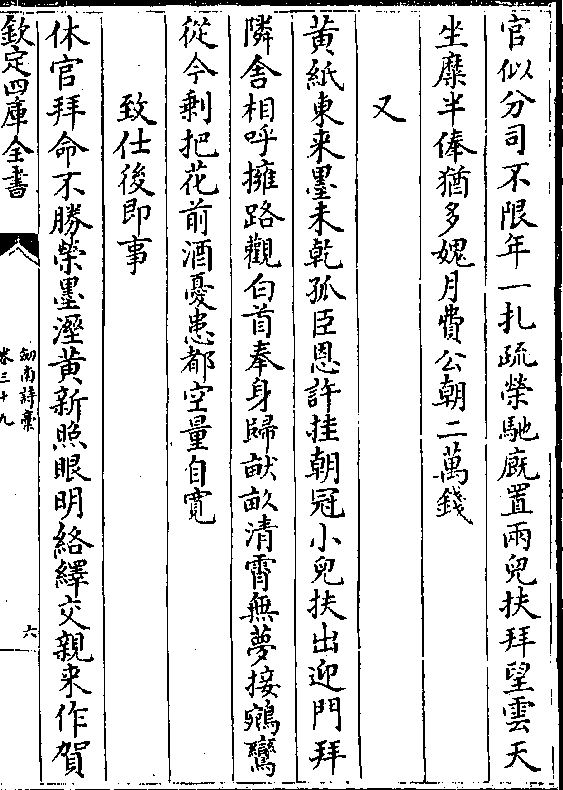 官似分司不限年一扎疏榮馳廐置兩兒扶拜望雲天
坐糜半俸猶多媿月費公朝二萬錢
又
黄紙東来墨未乾孤臣恩許挂朝冠小兒扶出迎門拜
隣舎相呼擁路觀白首奉身歸畎畝清霄無夢接鵷鸞
從今剰把花前酒憂患都空量自寛
致仕後即事
休官拜命不勝榮墨溼黄新照眼明絡繹交親来作賀
欽定四庫全書
劒南詩稾
卷三十九
六